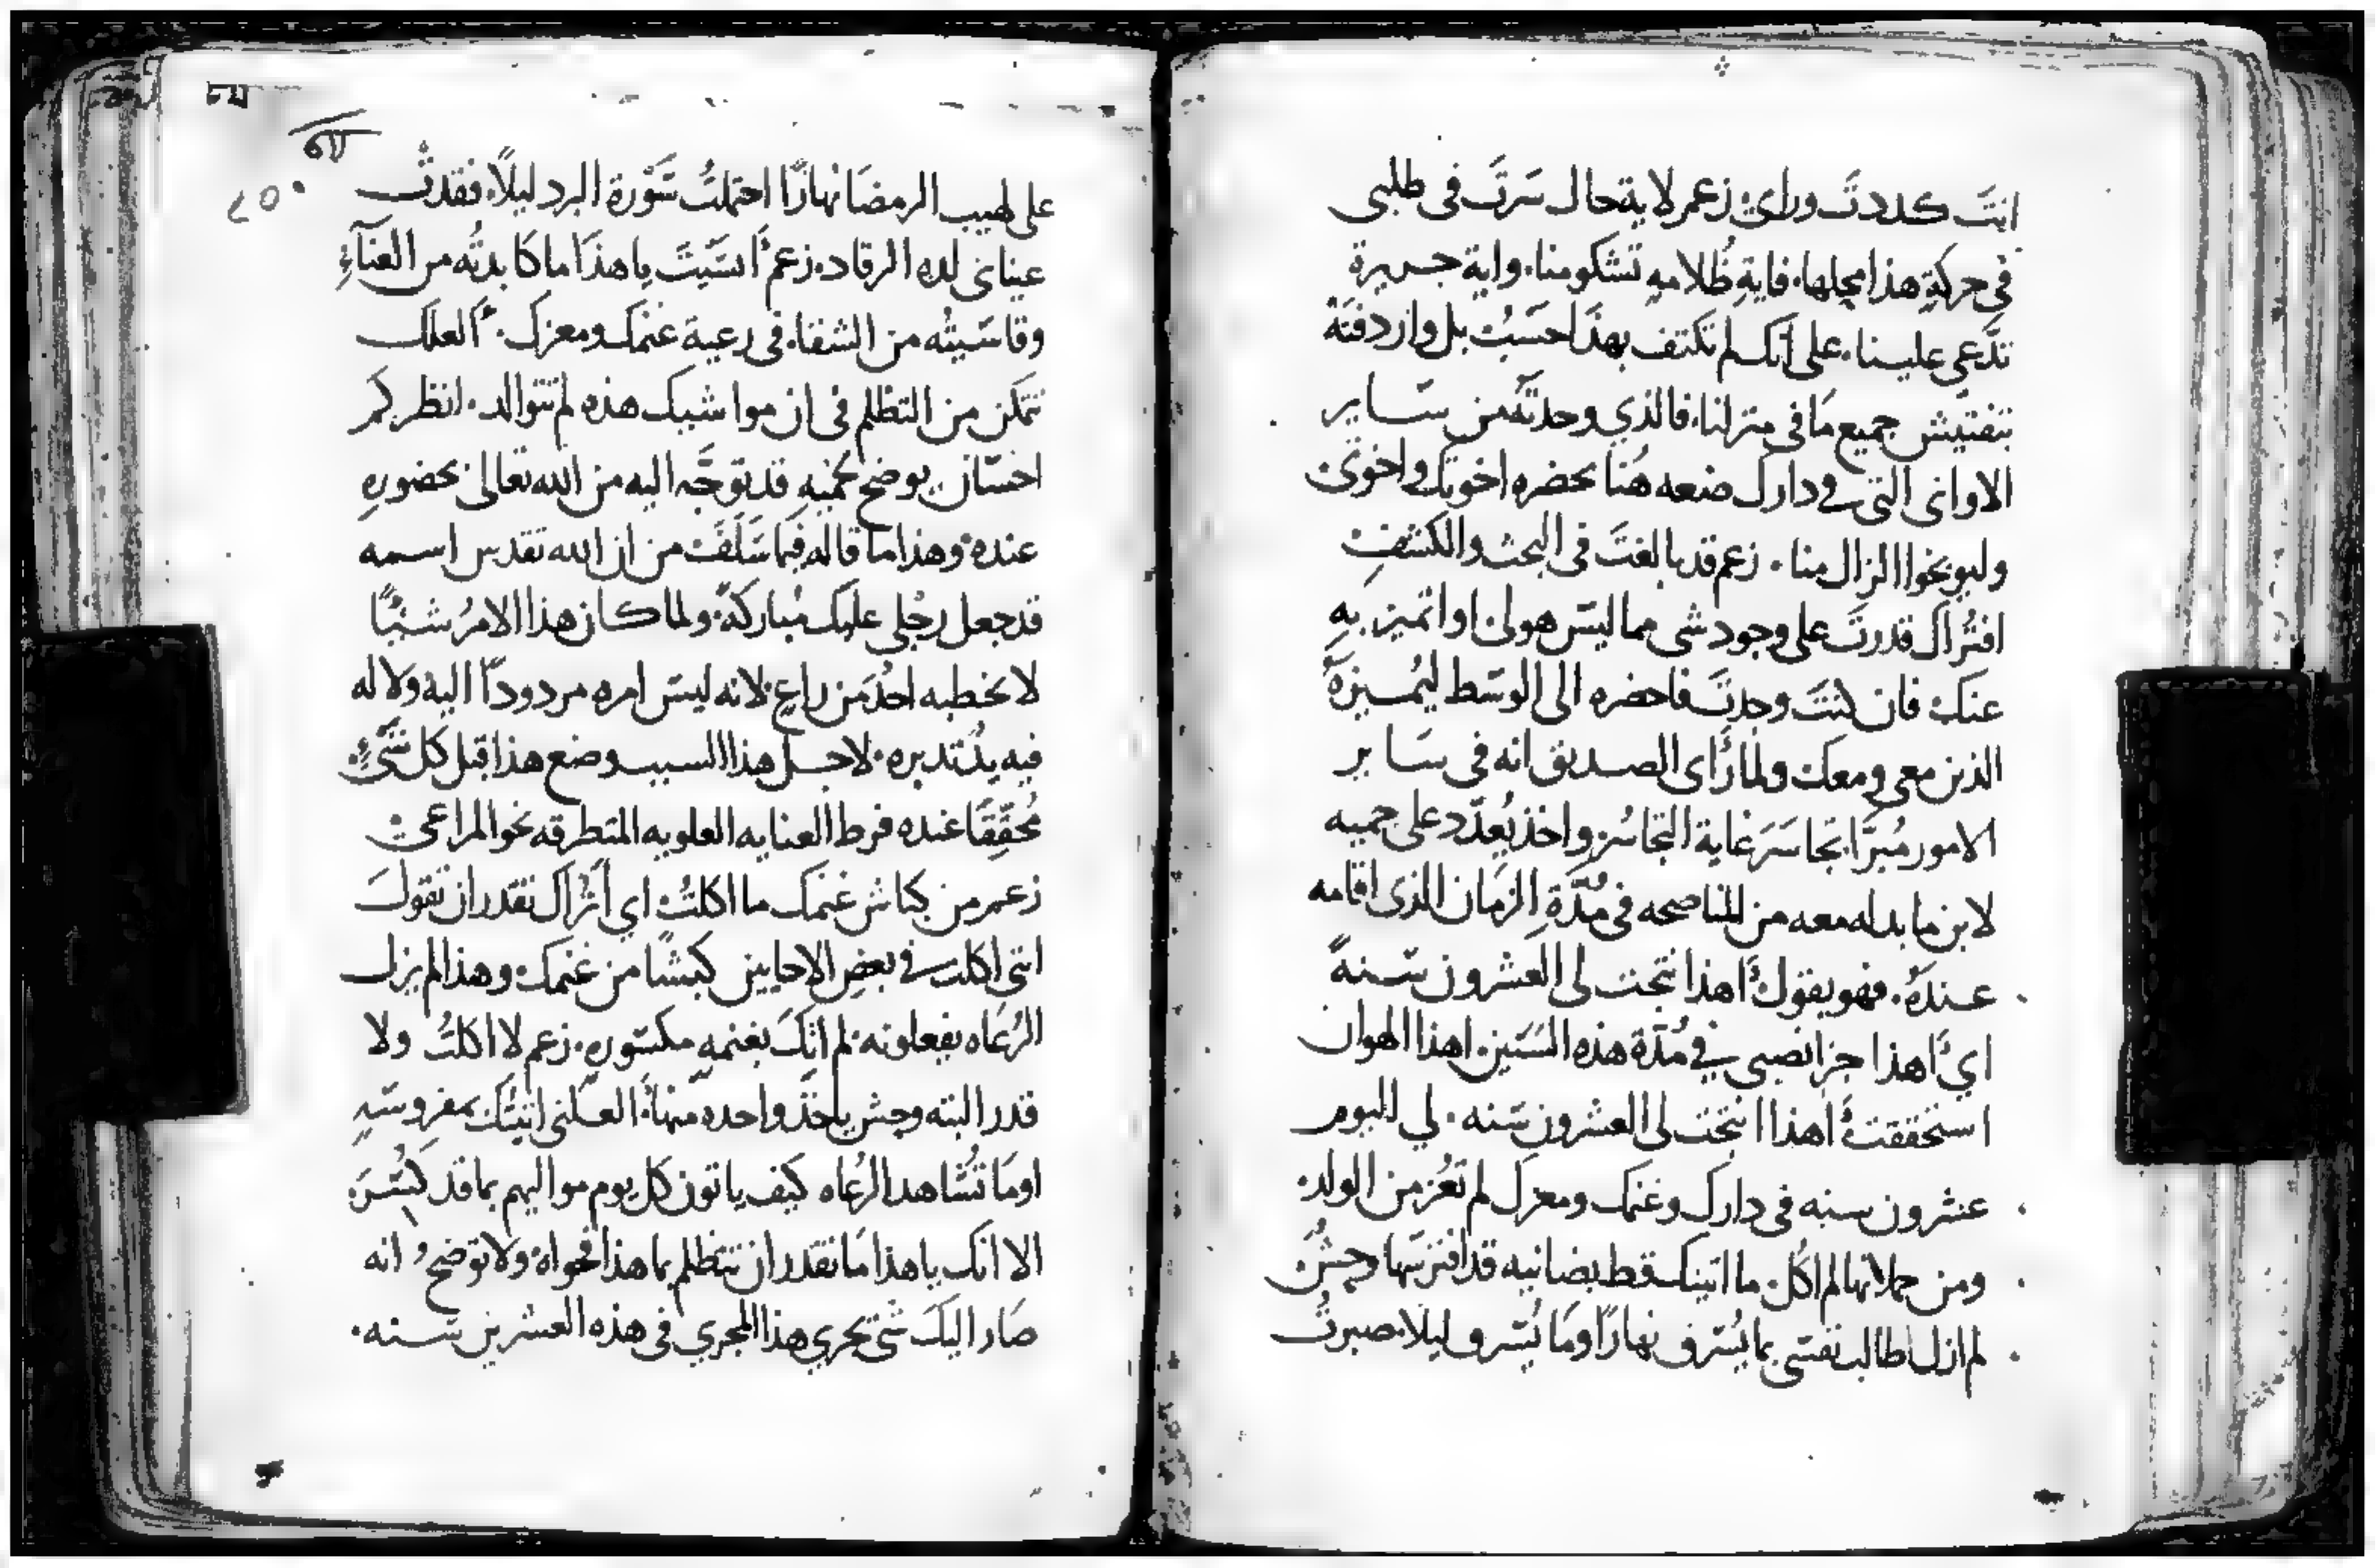 انتَ كددتَ وراي زعم لاية حال سَرتَ في طلبي
في حركةٍ هذا محلها. فايةِ ظُلامهٍ تشكو منا. واية جريرة
تدَّعي علينا. على اَنك لم تكتف بهذَا حسَبُ بل واردفتَهُ
بتفتيش جميع مَا في منزلنا. فالذي وجدتَهُ من سَاير
الاواني التي في دارك ضعه هُنا بحضره اخوتك واخوتي
وليوبخوا الزال منا. زعم قد بالغتَ في البحث والكشفِ
افتُراك قدرتَ على وجود شي مما ليسَ هو لي او اتميز بهِ
عنك فان كنتَ وجدتَ فاحضره الى الوسَط ليُميزهُ
الذين معي ومعك ولما رَاى الصديق انه في سَاير
الامور مُبرَّا تجاسَرَ غاية التجاسُر واخذ يُعدّد على حميه
لابن ما بدله معه من المناصحه في مُدَّةِ الزمَان الذي اقامه
عندهُ. فهو يقول اَهذا نتجت لي العشرون سَنهً
اي اَهذا جزا نصبي في مُدَّة هذه السَنين. اهذا الهوان
استحققت اَهذا انتجت لي العشرون سَنه. لي اليوم
عشرون سنه في دارك وغنمك ومعزك لم تعُز من الولد.
ومن حملانها لم اكُل. ما اتيتك قط بضانيه قد افترسَها وحشٌ
لم ازل اطالب نفسَي بما يُسَرق نهارًا ومَا يُسَرق ليلا. صبرتُ
٢٥٠
على لهيب الرمضَا نهارًا احتملتُ سَوْرة البرد ليلًا. فقدتْ
عيناي لده الرقاد. زعم اَنسَيتَ يا هذَا ما كابدتُه من العنآءِ
وقاسَيتُه من الشقا. في رعية غنمك ومعزك. اَلعلك
تتمكن من التظلم في ان مواشيك هذه لم تتوالد. انظر كم
احسَان يوضح لحميهِ قد توجَّه اليه من الله تعالى بحضورهِ
عنده وهذا ما قاله فيما سَلَفَ من ان الله تقدس اسمه
قد جعل رجلي عليك مُباركهً. ولما كان هذا الامرُ شَيًّا
لا يخطبه احدُ من راعٍ لانه ليسَ امره مردودًا اليه ولا له
فيه يدُ تدبره. لاجل هذا السبب وضع هذا قبل كل شَيءٍ.
مُحقِّقًا عنده فرط العنايه العلويه المتطرقه نحو المراعي
زعم من كباش غنمَك ما اكلتُ اي اَتُراك تقدر ان تقولَ
انني اكلت في بعض الاحايين كبشًا من غنمك وهذا لم يزل
الرُعَاه يفعلونه. لم اتكَ بغنمهٍ مكسَوره. زعم لا اكلتُ ولا
قدر البته وحش ياخذ واحده منها. العلني اتيتُك بمفروسَهٍ
اومَا تُشَاهد الرُعاه كيف ياتون كل يوم مواليهم بما قد كُسَرَ
الا انك يا هذا مَا تقدر ان تتظلم بما هذا فحواهُ ولا توضح انه
صَار اليكَ شي يجري هذا المجري في هذه العشرين سَنه.